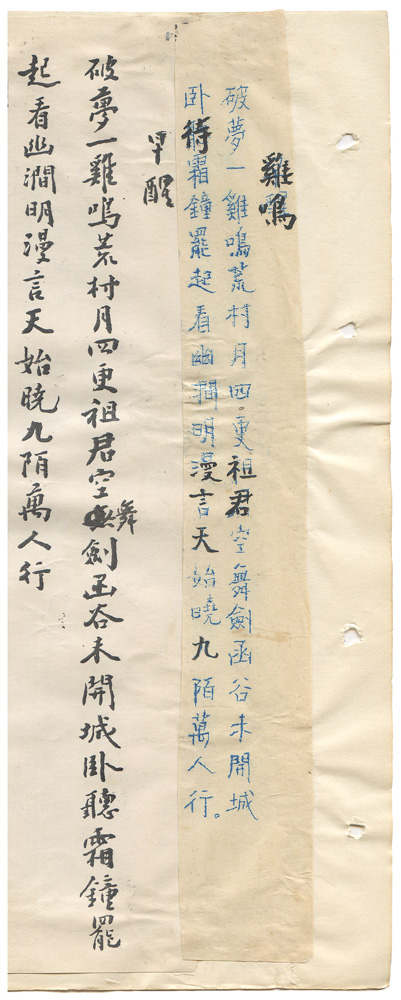 雞鳴
破夢一雞鳴荒村月四更祖君空舞劍函谷未開城
卧待霜鐘罷起看幽澗明漫言天始曉九陌萬人行。
早醒
破夢一雞鳴荒村月四更祖君空舞劍函谷未開城卧聽霜鐘罷
起看幽澗明漫言天始曉九陌萬人行